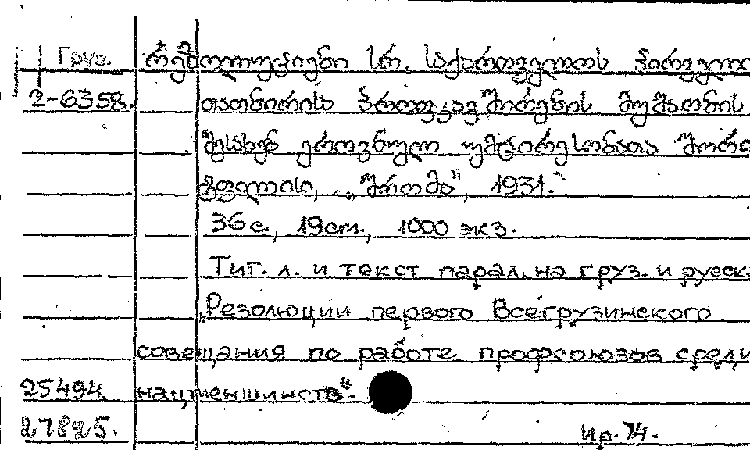 Груз. რეზოლუციები სრ. საქართველოს პირველი
2-6358. თათბირისა პროფკავშირების მუშაობის
შესახებ ეროვნულ უმცირესობათა შორის
ტფილისი, „შრომა“, 1931.
36 с., 19 см., 1000 экз.
Тит. л. и текст парал. на груз. и русск
„Резолюции первого Всегрузинского
совещания по работе профсоюзов среди
25494 нацменшинств“.
27825. Ир. 74.